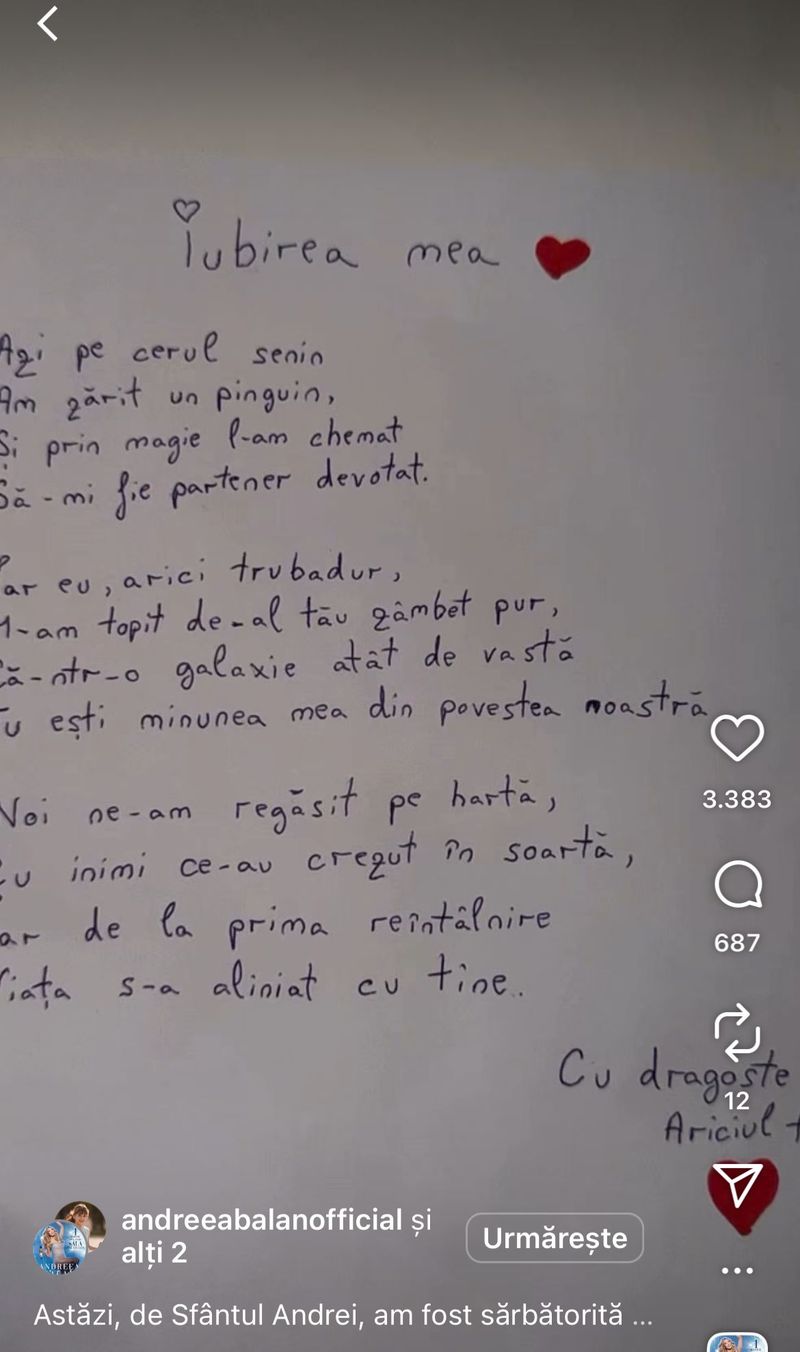 Iubirea mea
Azi pe cerul senin
Am zărit un pinguin,
Și prin magie l-am chemat
Să-mi fie partener devotat.
ar eu, arici trubadur,
M-am topit de-al tău zâmbet pur,
Că-ntr-o galaxie atât de vastă
Tu ești minunea mea din povestea noastră
Noi ne-am regăsit pe hartă,
Cu inimi ce-au crezut în soartă,
ar de la prima reîntâlnire
Viața s-a aliniat cu tine.
Cu dragoste
Ariciul
3.383
687
12
andreeabalanofficial și
alți 2
Urmărește
Astăzi, de Sfântul Andrei, am fost sărbătorită ...